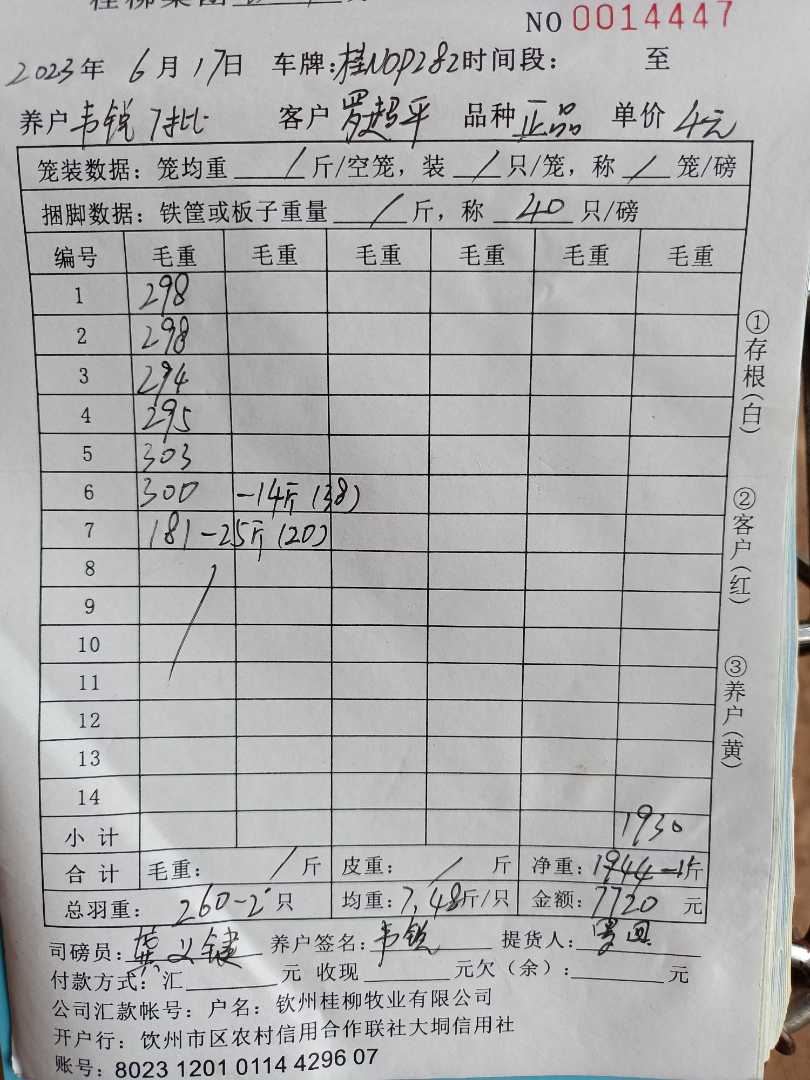 NO 0014447
2023年 6月17日 车牌:桂N0P282时间段: 至
养户韦锐7批 客户罗超平 品种正品 单价4元
笼装数据:笼均重 / 斤/空笼,装 / 只/笼,称 / 笼/磅
捆脚数据:铁筐或板子重量 / 斤,称 40 只/磅
编号 毛重 毛重 毛重 毛重 毛重 毛重
1 298
2 298
3 294
4 295
5 303
6 300 -14斤(38)
7 181-25斤(20)
8
9
10
11
12
13
14
小计 1930
合计 毛重: / 斤 皮重: / 斤 净重:1944-14斤
总羽重: 260-2只 均重:7.48斤/只 金额:7720元
司磅员: 养户签名:韦锐 提货人:
付款方式:汇 元 收现 元欠(余): 元
公司汇款帐号:户名:钦州桂柳牧业有限公司
开户行:饮州市区农村信用合作联社大垌信用社
账号:8023 1201 0114 4296 07
①存根(白)
②客户(红)
③养户(黄)